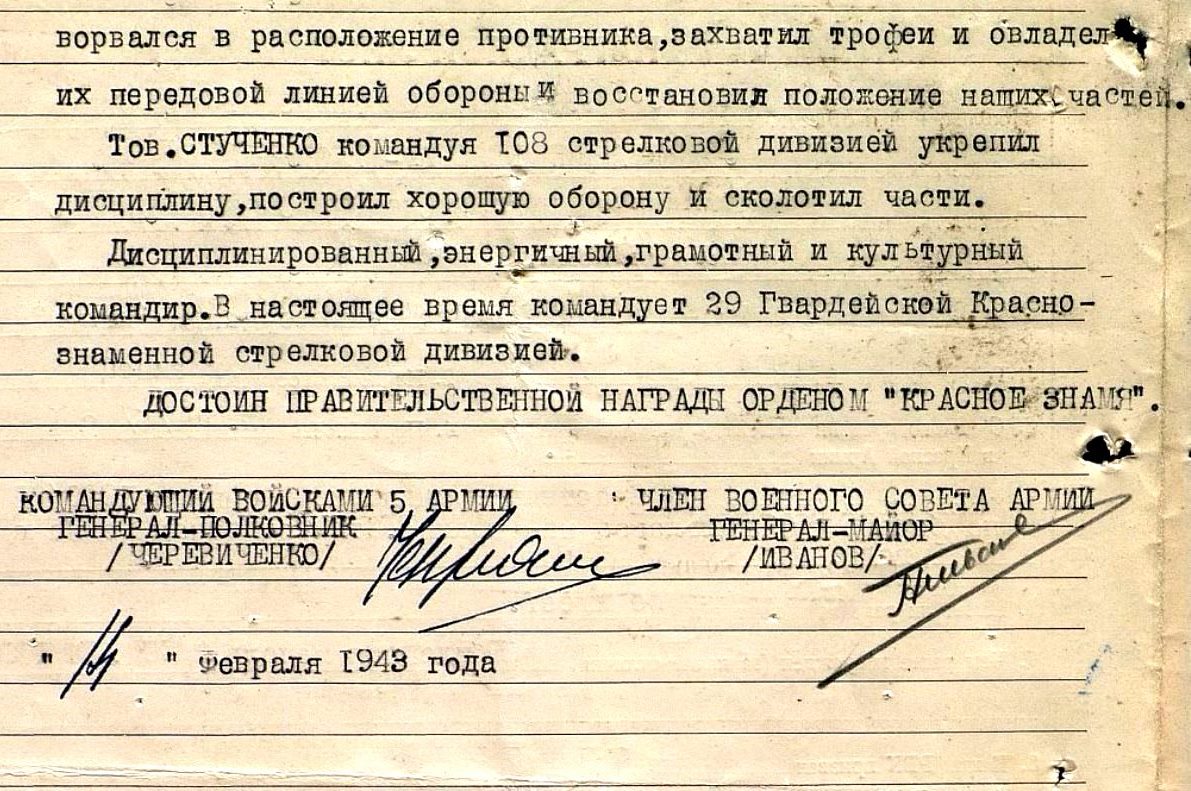 ворвался в расположение противника,захватил трофеи и овладел
их передовой линией обороны и восстановил положение наших частей.
Тов.СТУЧЕНКО командуя 108 стрелковой дивизией укрепил
дисциплину,построил хорошую оборону и сколотил части.
Дисциплинированный,энергичный,грамотный и культурный
командир.В настоящее время командует 29 Гвардейской Красно-
знаменной стрелковой дивизией.
ДОСТОИН ПРАВИТЕЛЬСТВЕННОЙ НАГРАДЫ ОРДЕНОМ "КРАСНОЕ ЗНАМЯ".
КОМАНДУЮЩИЙ ВОЙСКАМИ 5 АРМИИ
ГЕНЕРАЛ-ПОЛКОВНИК
/ЧЕРЕВИЧЕНКО/
ЧЛЕН ВОЕННОГО СОВЕТА АРМИИ
ГЕНЕРАЛ-МАЙОР
/ИВАНОВ/
" " Февраля 1943 года